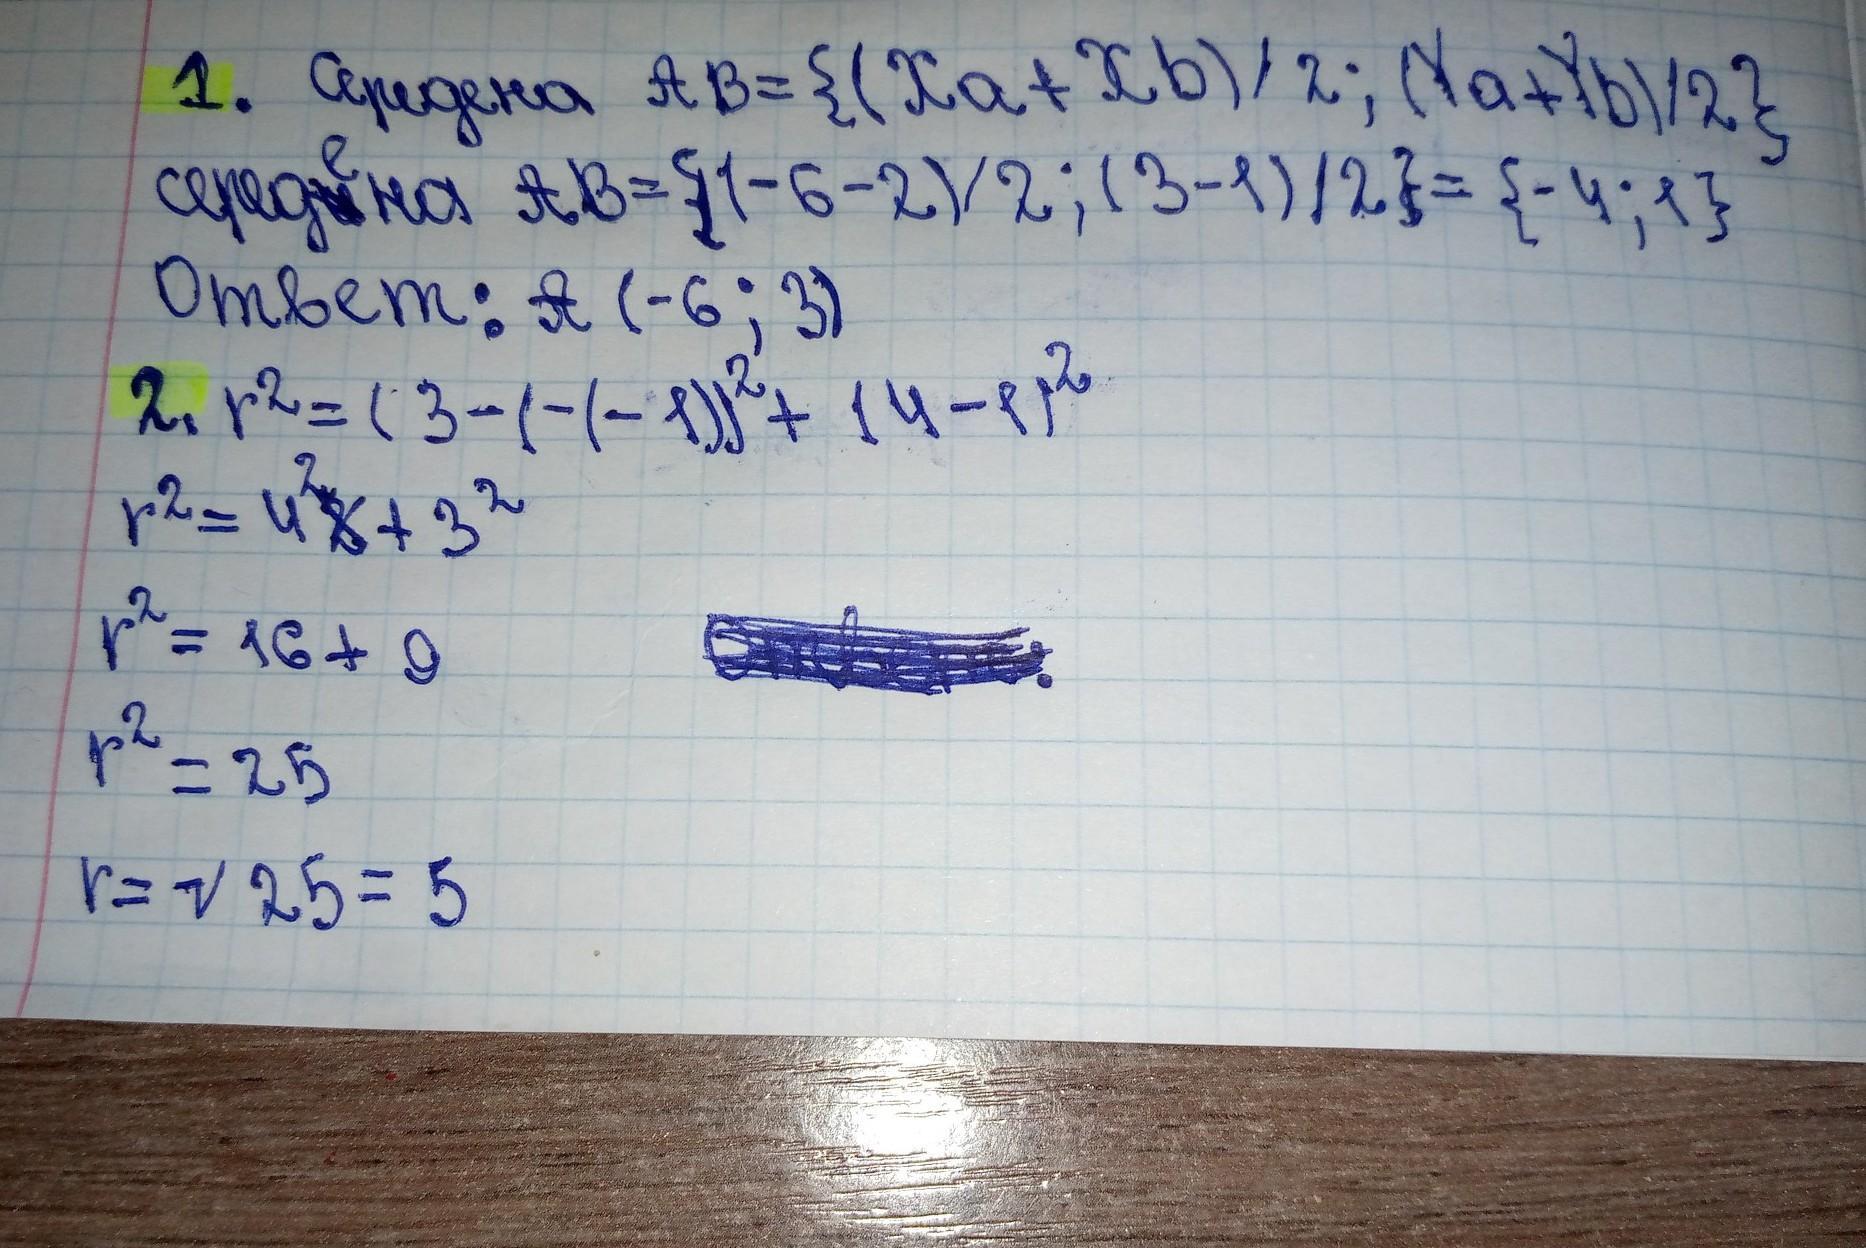 1. Середена AB={(Xa+Xb)/2;(Ya+Yb)/2}
середена AB={(-6-2)/2;(3-1)/2}={-4;1}
Ответ: A (-6;3)
2. r²=(3-(-(-1))²+(4-1)²
r²=4²+3²
r²=16+9
r²=25
r=√25=5